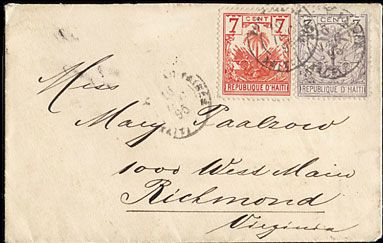 7 CENT 7
REPUBLIQUE D'HAITI
3 CENT 3
REPUBLIQUE D'HAITI
Miss
Mary Paalzow
1000 West Main
Richmond
Virginia